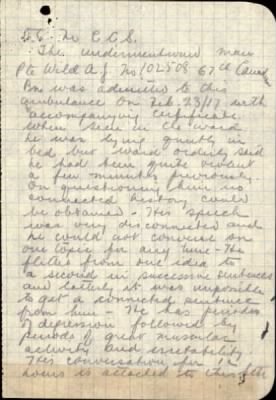 To No C.C.S.
The undermentioned man
Pte Wild A.J. No 102508 67th Cana
Bn was admitted to this
ambulance on Feb. 23/17 with
accompanying certificate.
When seen in the ward
he was lying quietly in
bed but ward orderly said
he had been quite violent
a few minutes previously.
On questioning him no
connected history could
be obtained - His speech
was very disconnected and
he could not converse on
one topic for any time - He
flitted from one idea to
a second in successive sentences
and latterly it was impossible
to get a connected sentence
from him - He has periods
of depression followed by
periods of great muscular
activity and irritability.
His conversation for 12
hours is attached to this